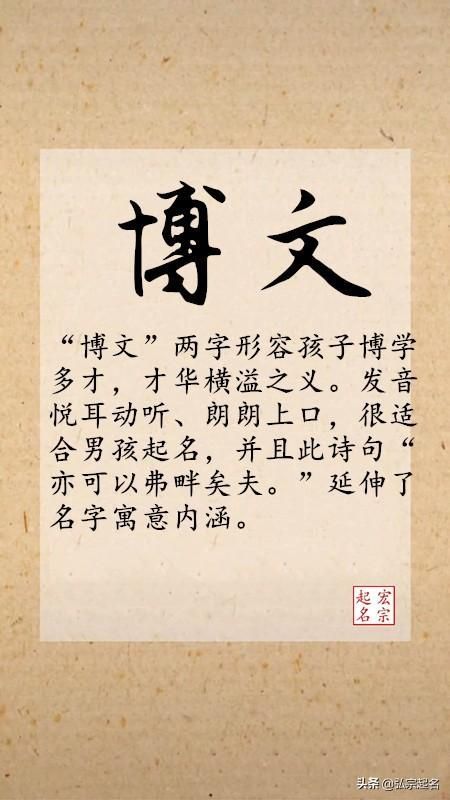 博文
“博文”两字形容孩子博学
多才，才华横溢之义。发音
悦耳动听、朗朗上口，很适
合男孩起名，并且此诗句“
亦可以弗畔矣夫。”延伸了
名字寓意内涵。
宏宗
起名
头条 @弘宗起名